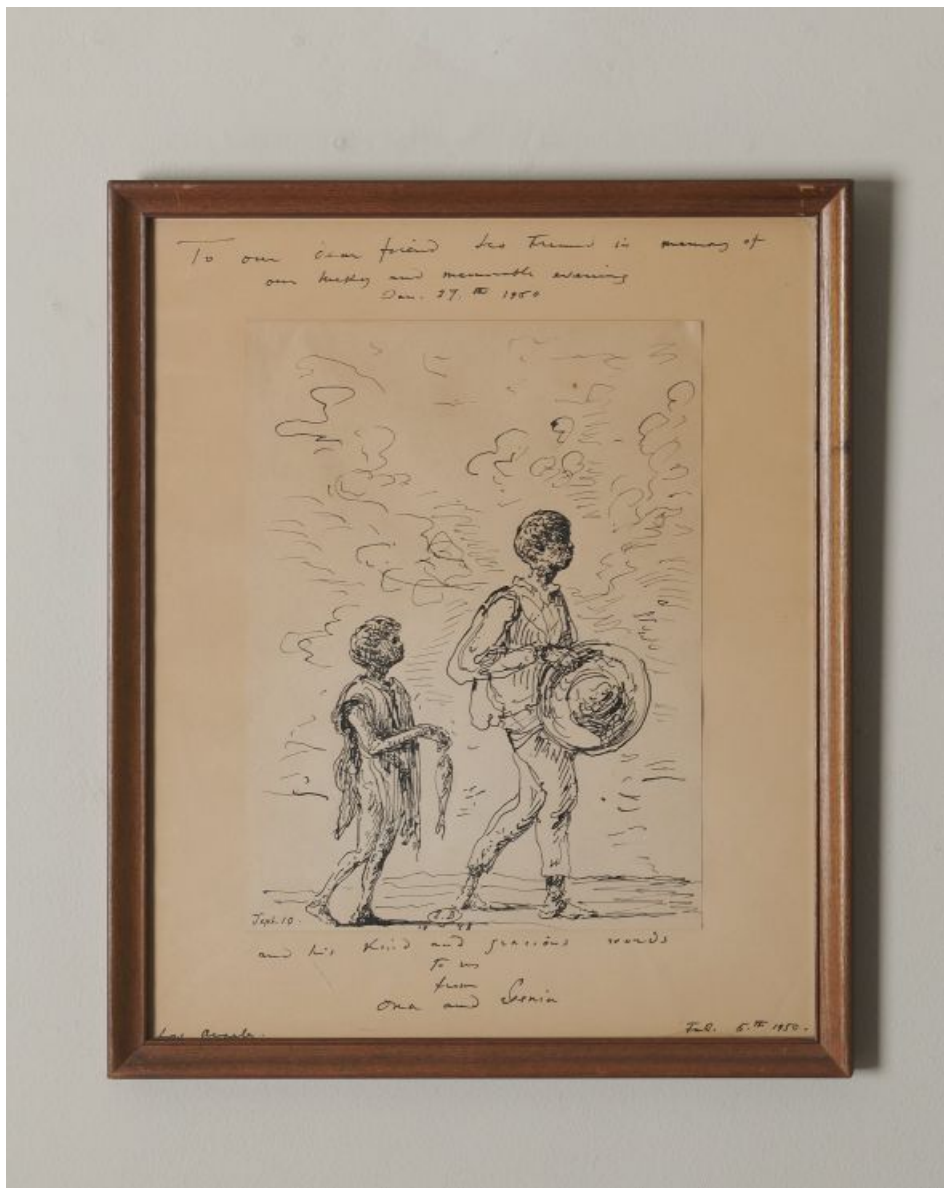 To our dear friend Leo in memory of
our and memorable evening
Jan. 27.th 1950
Sept. 10.
and his kind and gracious words
to us
from
and Genia
Los Angeles.
Feb. 5.th 1950.